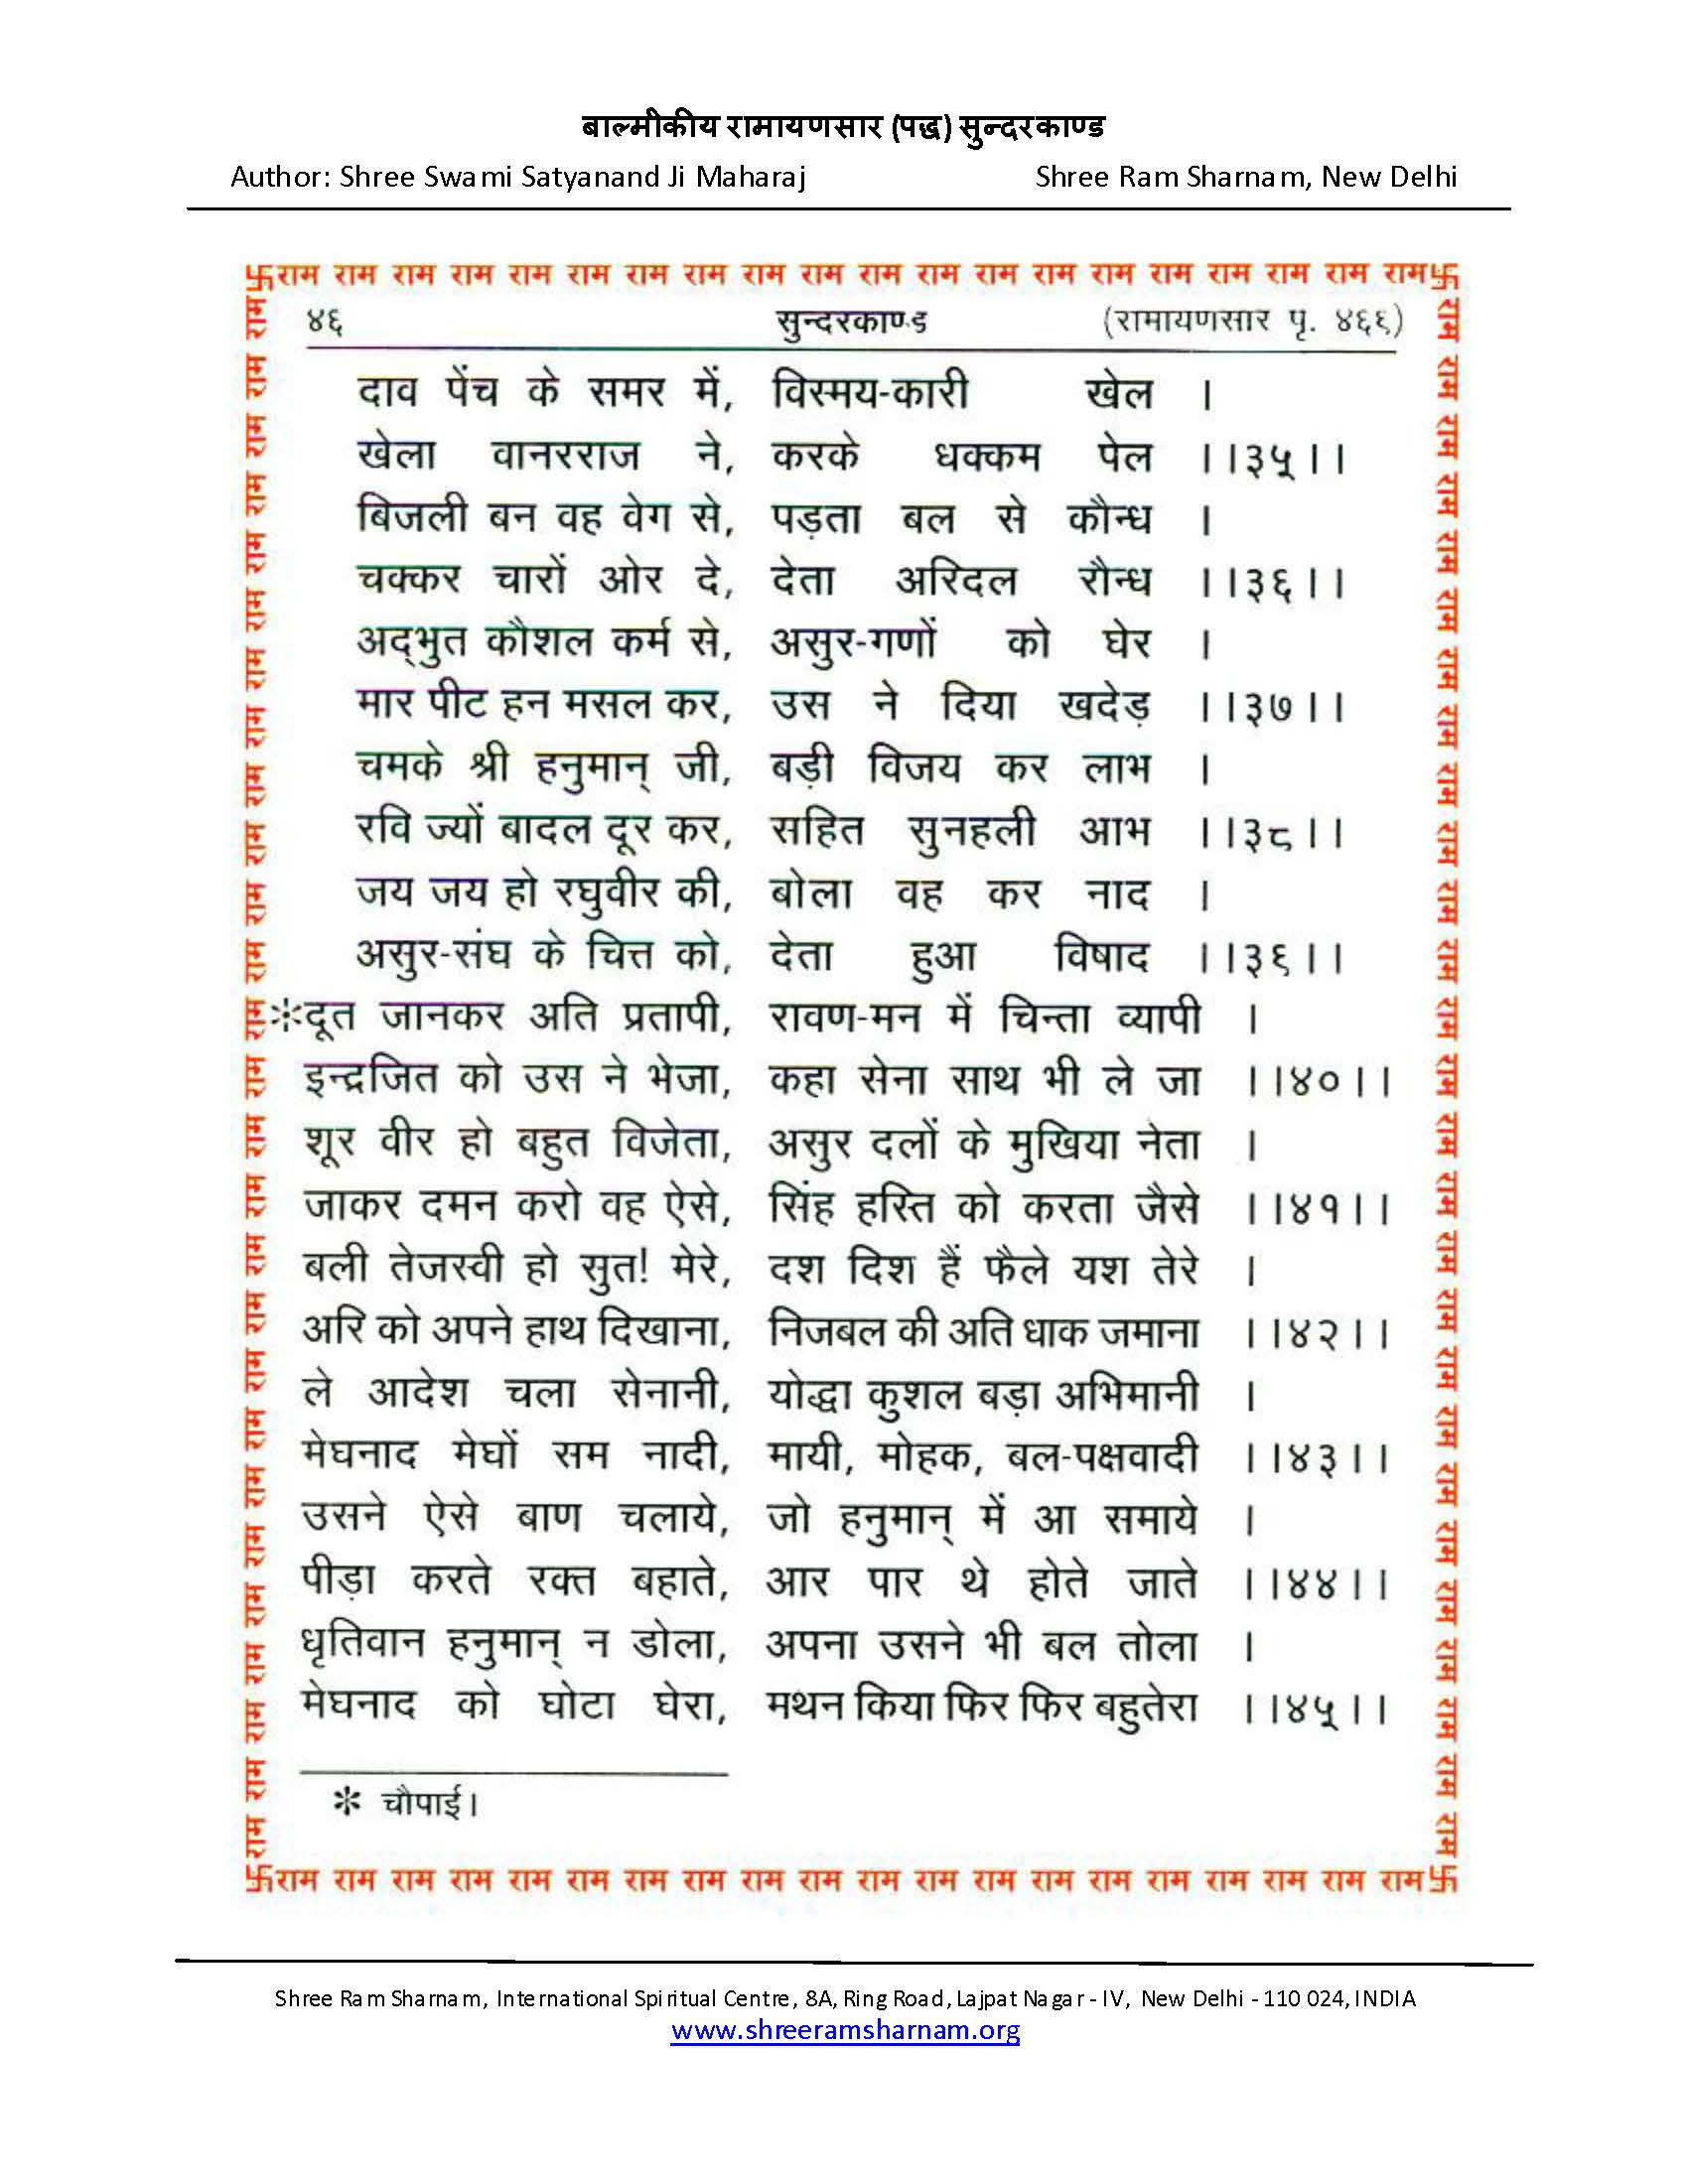 बाल्मीकीय रामायणसार (पद्ध) सुन्दरकाण्ड
Author: Shree Swami Satyanand Ji Maharaj Shree Ram Sharnam, New Delhi
卐राम राम राम राम राम राम राम राम राम राम राम राम राम राम राम राम राम राम राम राम卐
४६ सुन्दरकाण्ड (रामायणसार पृ. ४६६)
दाव पेंच के समर में, विस्मय-कारी खेल ।
खेला वानरराज ने, करके धक्कम पेल ।।३५।।
बिजली बन वह वेग से, पड़ता बल से कौन्ध ।
चक्कर चारों ओर दे, देता अरिदल रौन्ध ।।३६।।
अद्भुत कौशल कर्म से, असुर-गणों को घेर ।
मार पीट हन मसल कर, उस ने दिया खदेड़ ।।३७।।
चमके श्री हनुमान् जी, बड़ी विजय कर लाभ ।
रवि ज्यों बादल दूर कर, सहित सुनहली आभ ।।३८।।
जय जय हो रघुवीर की, बोला वह कर नाद ।
असुर-संघ के चित्त को, देता हुआ विषाद ।।३६।।
*दूत जानकर अति प्रतापी, रावण-मन में चिन्ता व्यापी ।
इन्द्रजित को उस ने भेजा, कहा सेना साथ भी ले जा ।।४०।।
शूर वीर हो बहुत विजेता, असुर दलों के मुखिया नेता ।
जाकर दमन करो वह ऐसे, सिंह हस्ति को करता जैसे ।।४१।।
बली तेजस्वी हो सुत! मेरे, दश दिश हैं फैले यश तेरे ।
अरि को अपने हाथ दिखाना, निजबल की अति धाक जमाना ।।४२।।
ले आदेश चला सेनानी, योद्धा कुशल बड़ा अभिमानी ।
मेघनाद मेघों सम नादी, मायी, मोहक, बल-पक्षवादी ।।४३।।
उसने ऐसे बाण चलाये, जो हनुमान् में आ समाये ।
पीड़ा करते रक्त बहाते, आर पार थे होते जाते ।।४४।।
धृतिवान हनुमान् न डोला, अपना उसने भी बल तोला ।
मेघनाद को घोटा घेरा, मथन किया फिर फिर बहुतेरा ।।४५।।
* चौपाई।
卐राम राम राम राम राम राम राम राम राम राम राम राम राम राम राम राम राम राम राम राम卐
Shree Ram Sharnam, International Spiritual Centre, 8A, Ring Road, Lajpat Nagar - IV, New Delhi - 110 024, INDIA
www.shreeramsharnam.org